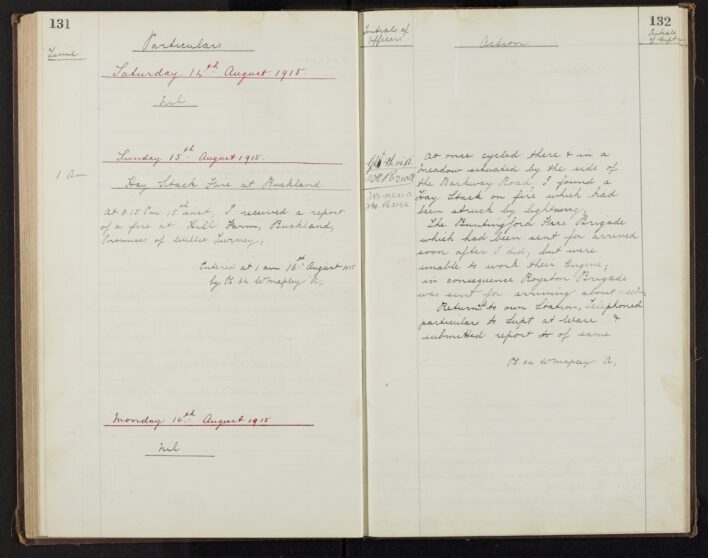 131
Time
Particulars
Saturday 14th August 1915.
Nil
Sunday 15th August 1915.
1 am
Hay Stack Fire at Buckland
At 3.15 Pm 15th inst, I received a report
of a fire at Hill Farm, Buckland,
Premises of Willet Surrey,
Entered at 1 am 16th August 1915
by Ps 64 W mapley A,
Monday 16th August 1915
Nil
Initials of
Officers
Action
132
Initials
of Supt
At once cycled there & in a
meadow situated by the side of
the Barkway Road, I found a
Hay Stack on fire which had
been struck by lightning,
The Buntingford Fire Brigade
which had been sent for arrived
soon after I did, but were
unable to work their Engine;
in consequence Royston Brigade
was sent for arriving about
Returnd to own Station, Telephoned
particular to Supt at Ware &
submitted report to of same
Ps 64 W mapley A,